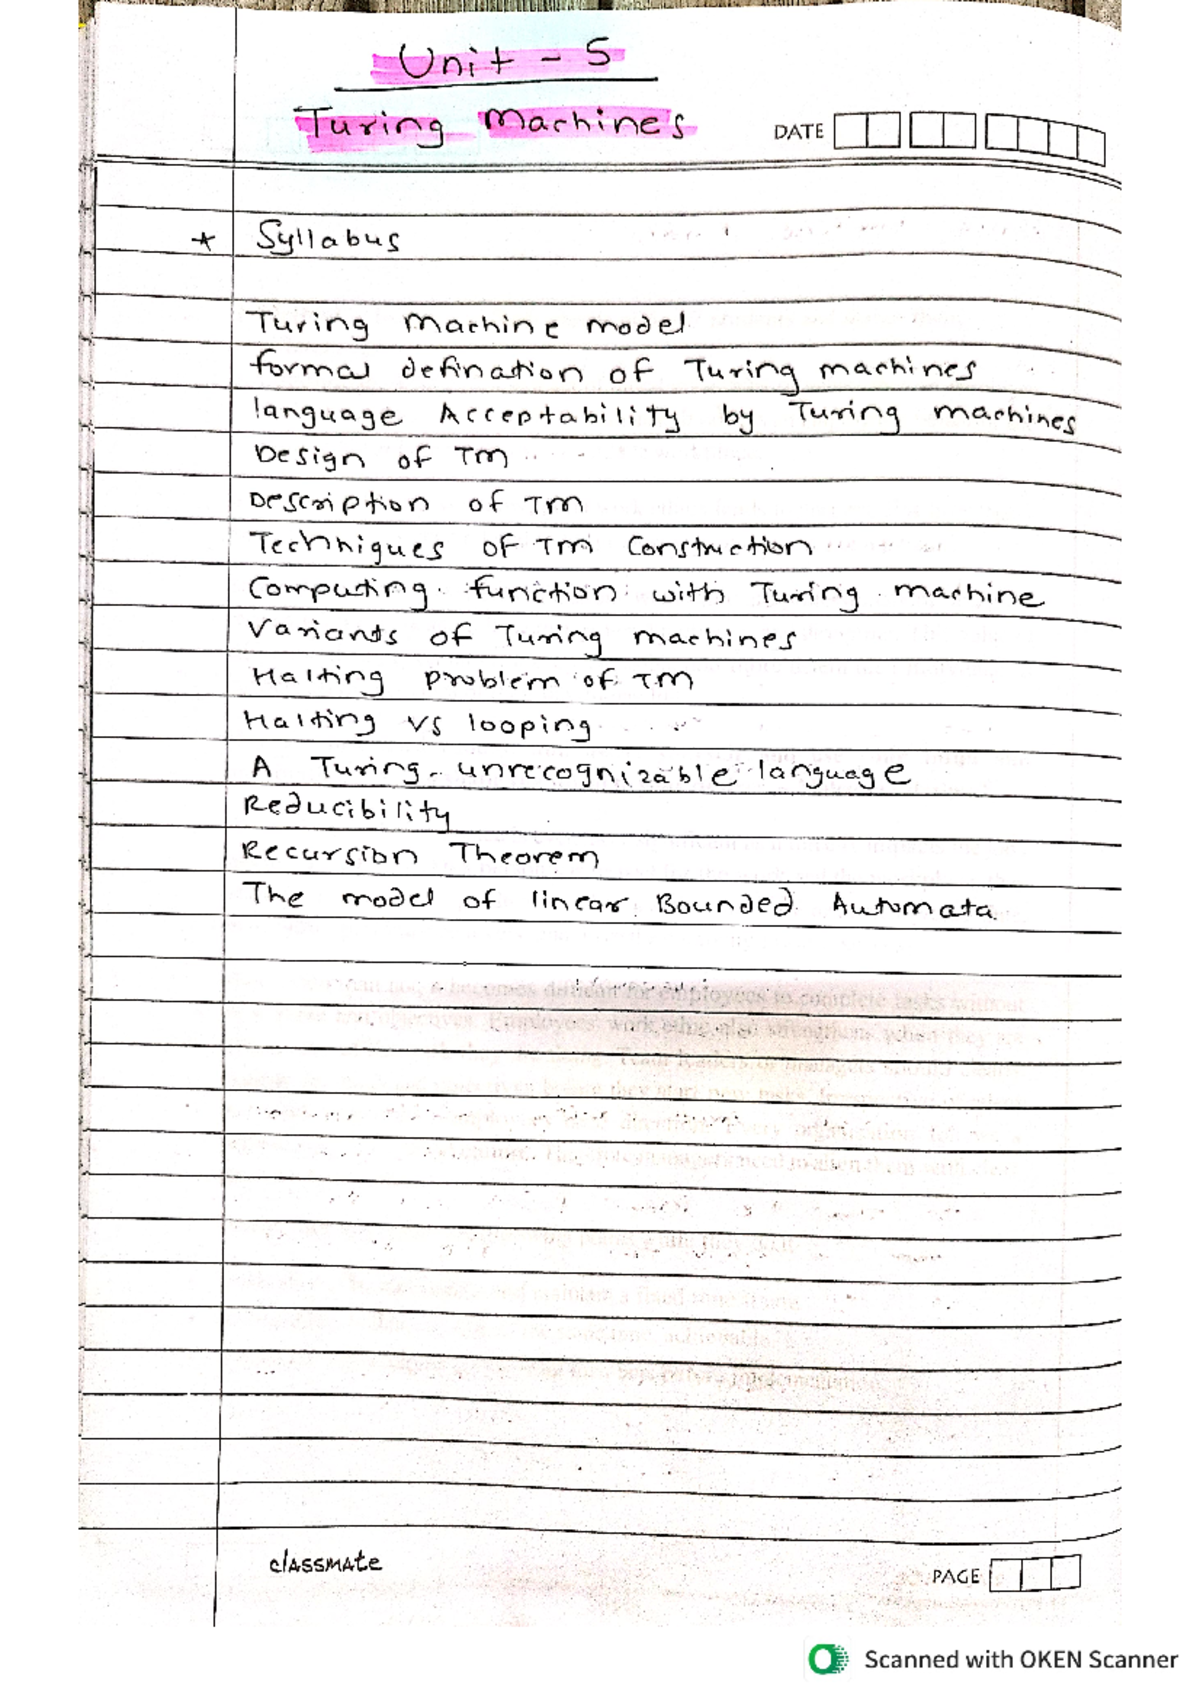 Unit - 5
Turing Machines
DATE
* Syllabus
Turing Machine model
formal defination of Turing machines
language Acceptability by Turing machines
Design of TM
Description of TM
Techniques of TM Construction
Computing function with Turing machine
Variants of Turing machines
Halting problem of TM
Halting vs looping
A Turing-unrecognizable language
Reducibility
Recursion Theorem
The model of linear Bounded Automata
classmate
PAGE
Scanned with OKEN Scanner